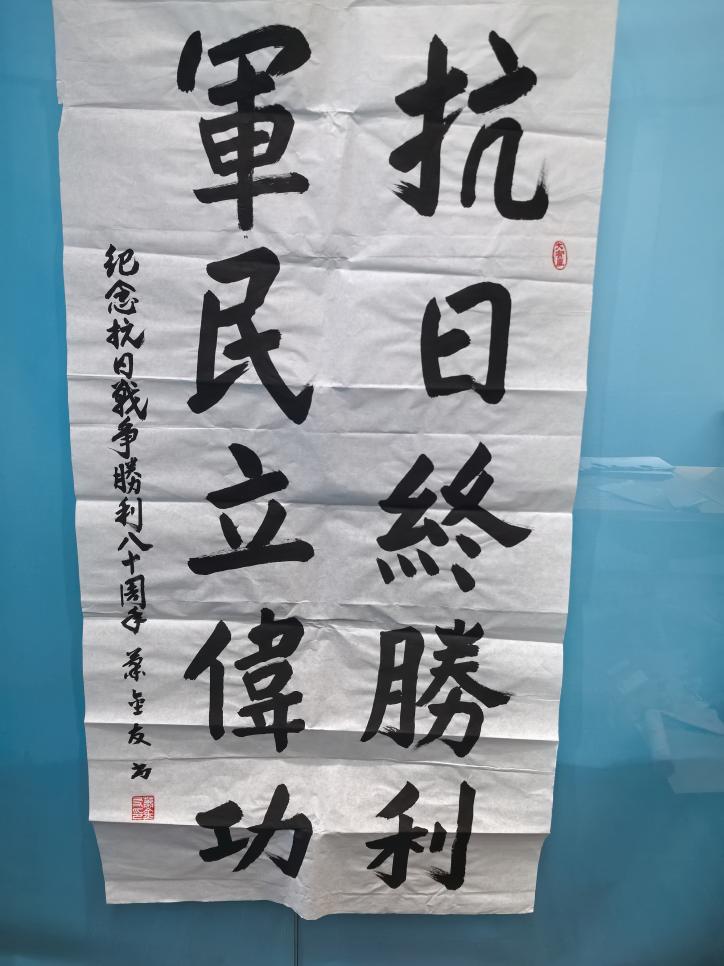 抗日終勝利
軍民立偉功
紀念抗日戰爭勝利八十周年 萧金友书